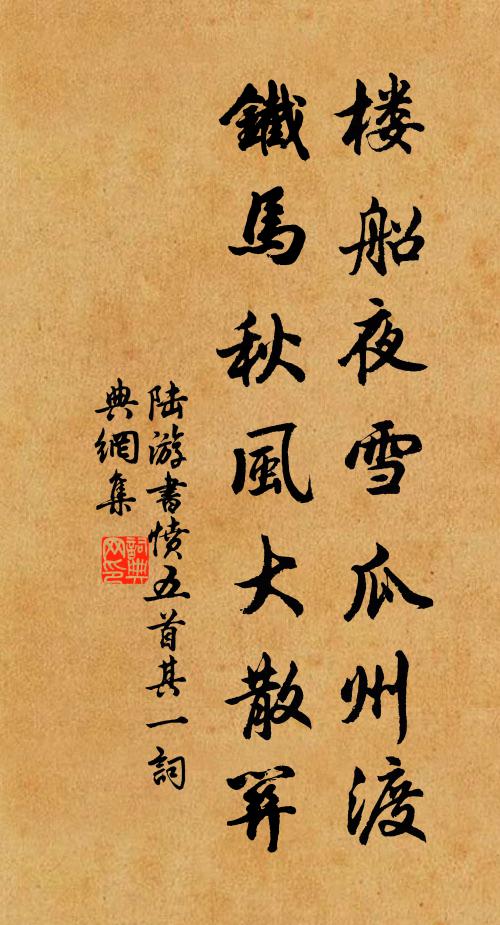 楼船夜雪瓜州渡
鐵馬秋風大散關
陆游書憤五首其一詞
典網集
詞典网印